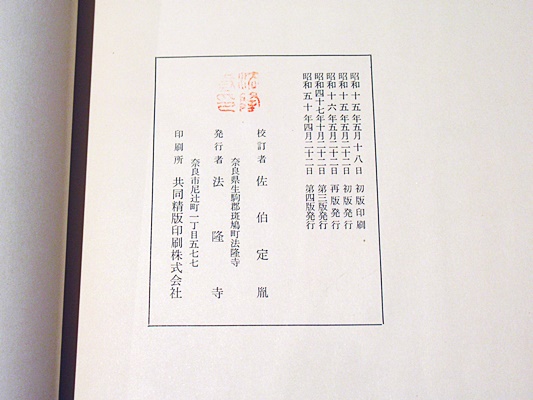 昭和十五年五月十八日 初版印刷
昭和十五年五月二十二日 初版発行
昭和十六年五月二十二日 再版発行
昭和四十七年十月二十二日 第三版発行
昭和五十年四月二十二日 第四版発行
校訂者 佐伯定胤
奈良県生駒郡斑鳩町法隆寺
発行者 法隆寺
奈良市尼辻町一丁目五七七
印刷所 共同精版印刷株式会社